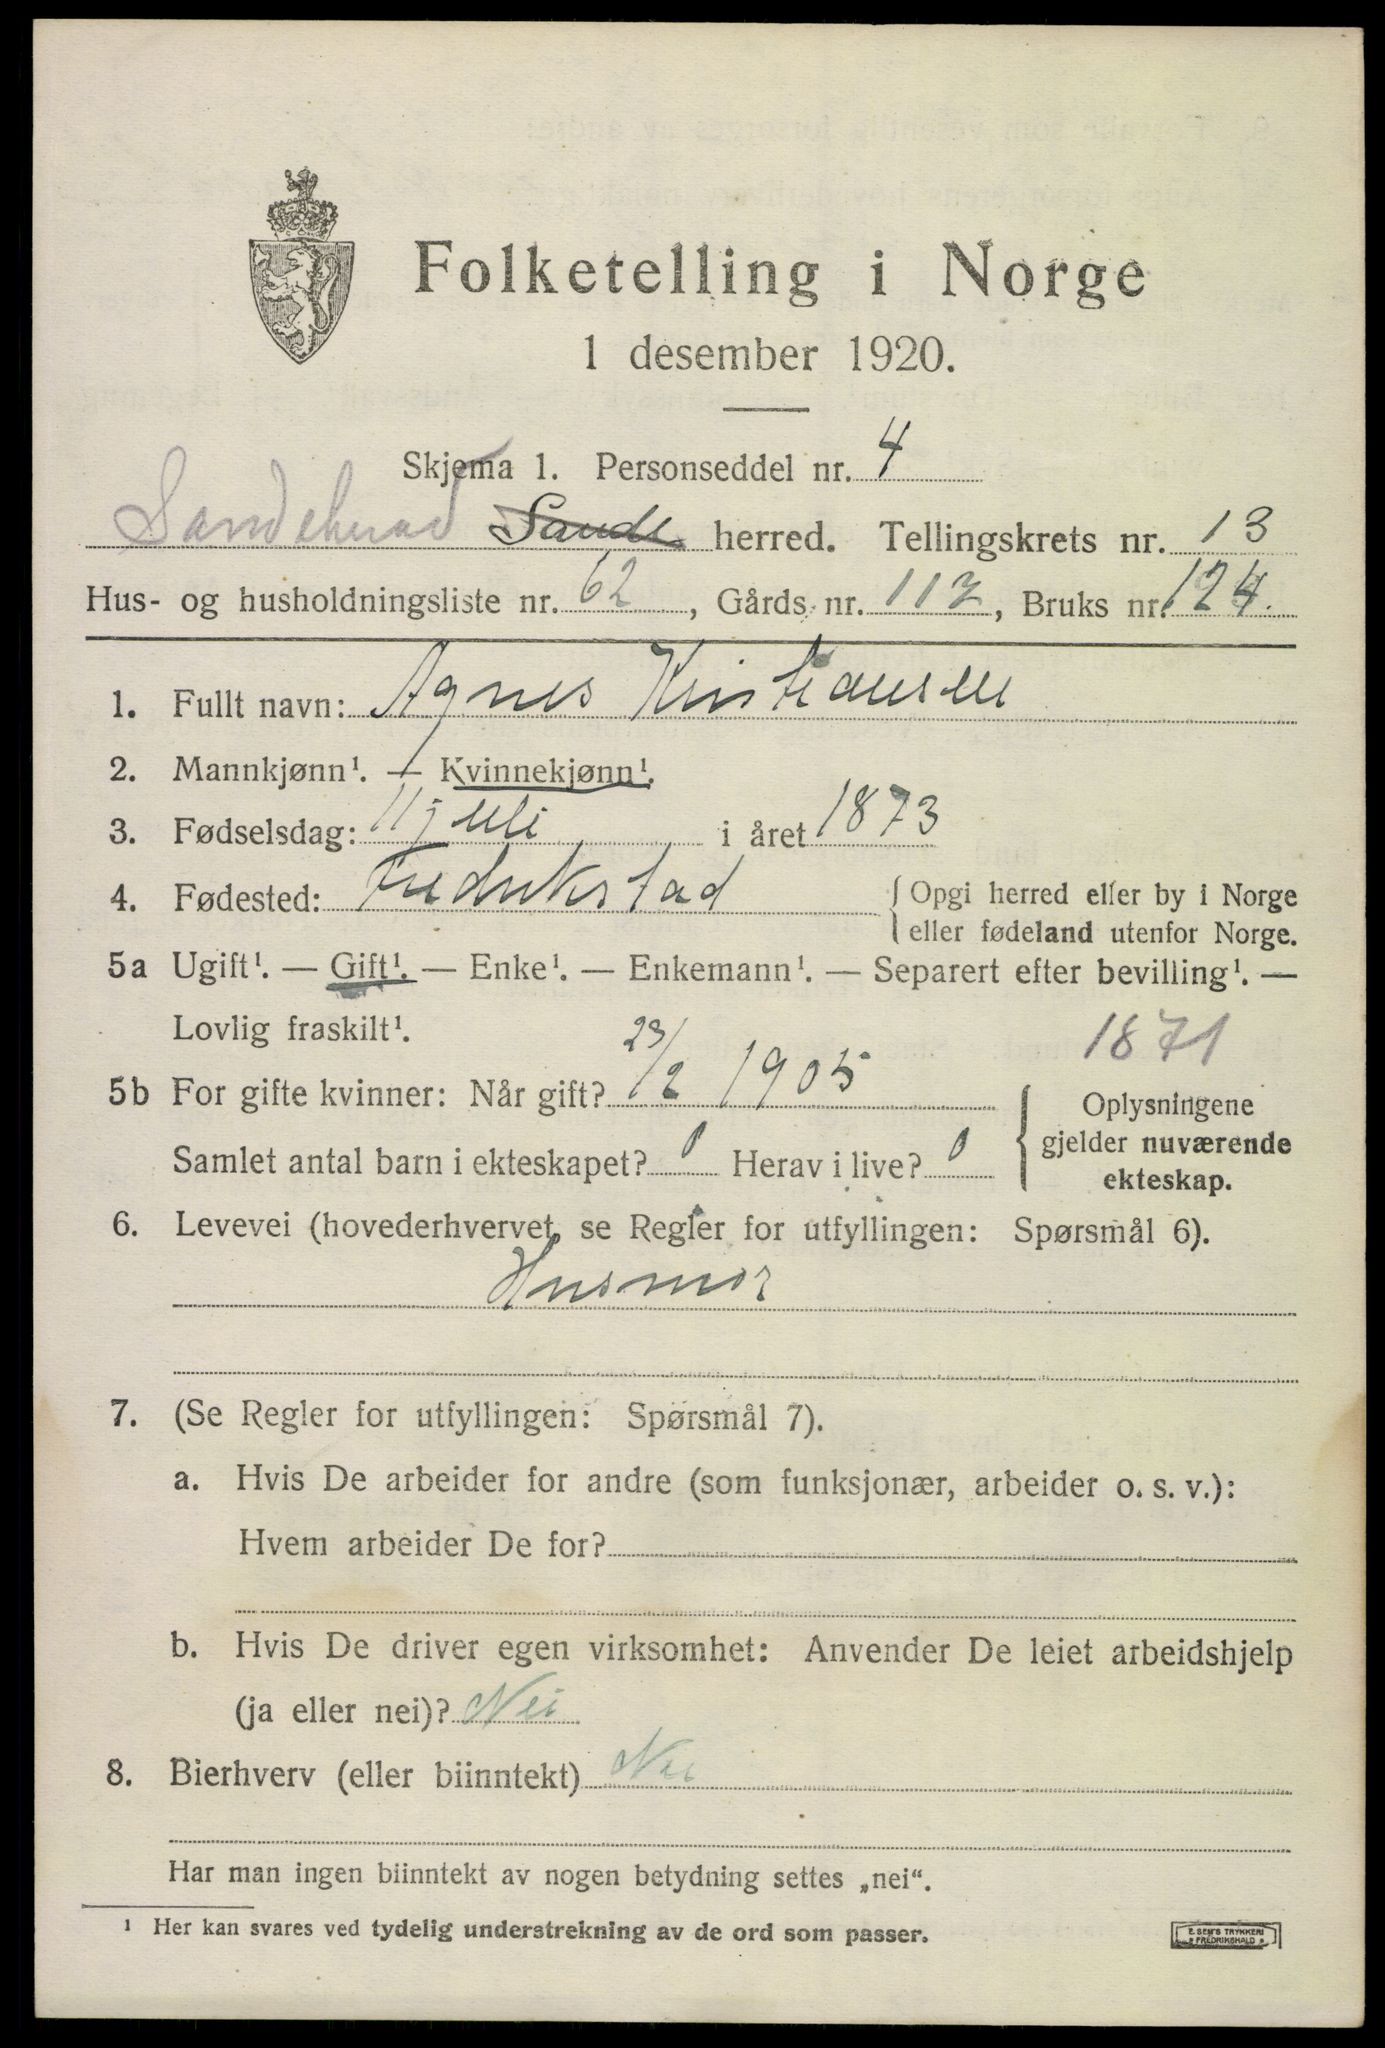 Folketelling i Norge
1 desember 1920.
Skjema 1. Personseddel nr. 4
Sandeherad Sande herred. Tellingskrets nr. 13
Hus- og husholdningsliste nr. 62, Gårds nr. 112, Bruks nr. 124.
1. Fullt navn: Agnes Kristiansen
2. Mannkjønn¹. — Kvinnekjønn¹.
3. Fødselsdag: 11 juli i året 1873
4. Fødested: Fredrikstad { Opgi herred eller by i Norge
eller fødeland utenfor Norge.
5a Ugift¹. — Gift¹. — Enke¹. — Enkemann¹. — Separert efter bevilling¹. —
Lovlig fraskilt¹. 1871
5b For gifte kvinner: Når gift? 23/2 1905
Samlet antal barn i ekteskapet? 0 Herav i live? 0
{ Oplysningene
gjelder nuværende
ekteskap.
6. Levevei (hovederhvervet, se Regler for utfyllingen: Spørsmål 6).
Husmor
7. (Se Regler for utfyllingen: Spørsmål 7).
a. Hvis De arbeider for andre (som funksjonær, arbeider o. s. v.):
Hvem arbeider De for?
b. Hvis De driver egen virksomhet: Anvender De leiet arbeidshjelp
(ja eller nei)? Nei
8. Bierhverv (eller biinntekt) Nei
Har man ingen biinntekt av nogen betydning settes „nei“.
¹ Her kan svares ved tydelig understrekning av de ord som passer.
E. SEM'S TRYKKERI
FREDRIKSHALD